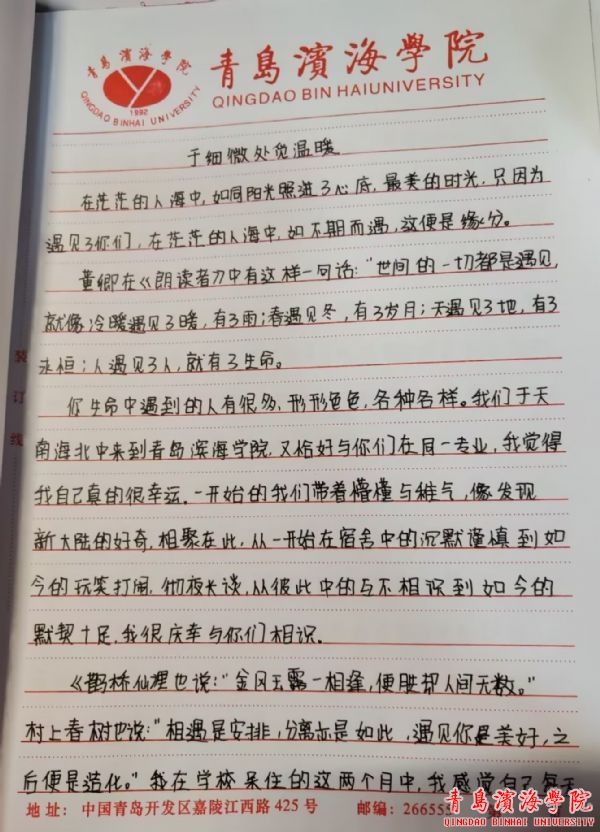 青島濱海學院
QINGDAO BINHAI UNIVERSITY
1992
青島濱海學院
QINGDAO BINHAI UNIVERSITY
于细微处觉温暖
在茫茫的人海中,如同阳光照进了心底,最美的时光,只因为
遇见了你们,在茫茫的人海中,如不期而遇,这便是缘分。
董卿在《朗读者》中有这样一句话:“世间的一切都是遇见,
就像冷暖遇见了暖,有了雨;春遇见冬,有了岁月;天遇见了地,有了
永恒;人遇见了人,就有了生命。
你生命中遇到的人有很多,形形色色,各种各样。我们于天
南海北中来到青岛滨海学院,又恰好与你们在同一专业,我觉得
我自己真的很幸运。一开始的我们带着懵懂与稚气,像发现
新大陆的好奇,相聚在此,从一开始在宿舍中的沉默谨慎到如
今的玩笑打闹,彻夜长谈,从彼此中的与不相识到如今的
默契十足,我很庆幸与你们相识。
《鹊桥仙》里也说:“金风玉露一相逢,便胜却人间无数。”
村上春树也说:“相遇是安排,分离亦是如此,遇见你是美好,之
后便是造化。”我在学校呆住的这两个月中,我感觉自己每天
装
订
线
地 址: 中国青岛开发区嘉陵江西路 425 号
邮编: 266555
青島濱海學院
QINGDAO BINHAI UNIVERSITY